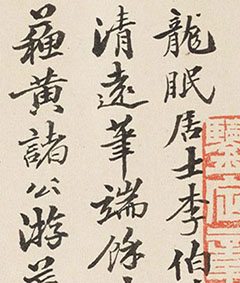 龍眠居士李伯
清遠筆端餘
蘓黃諸公游